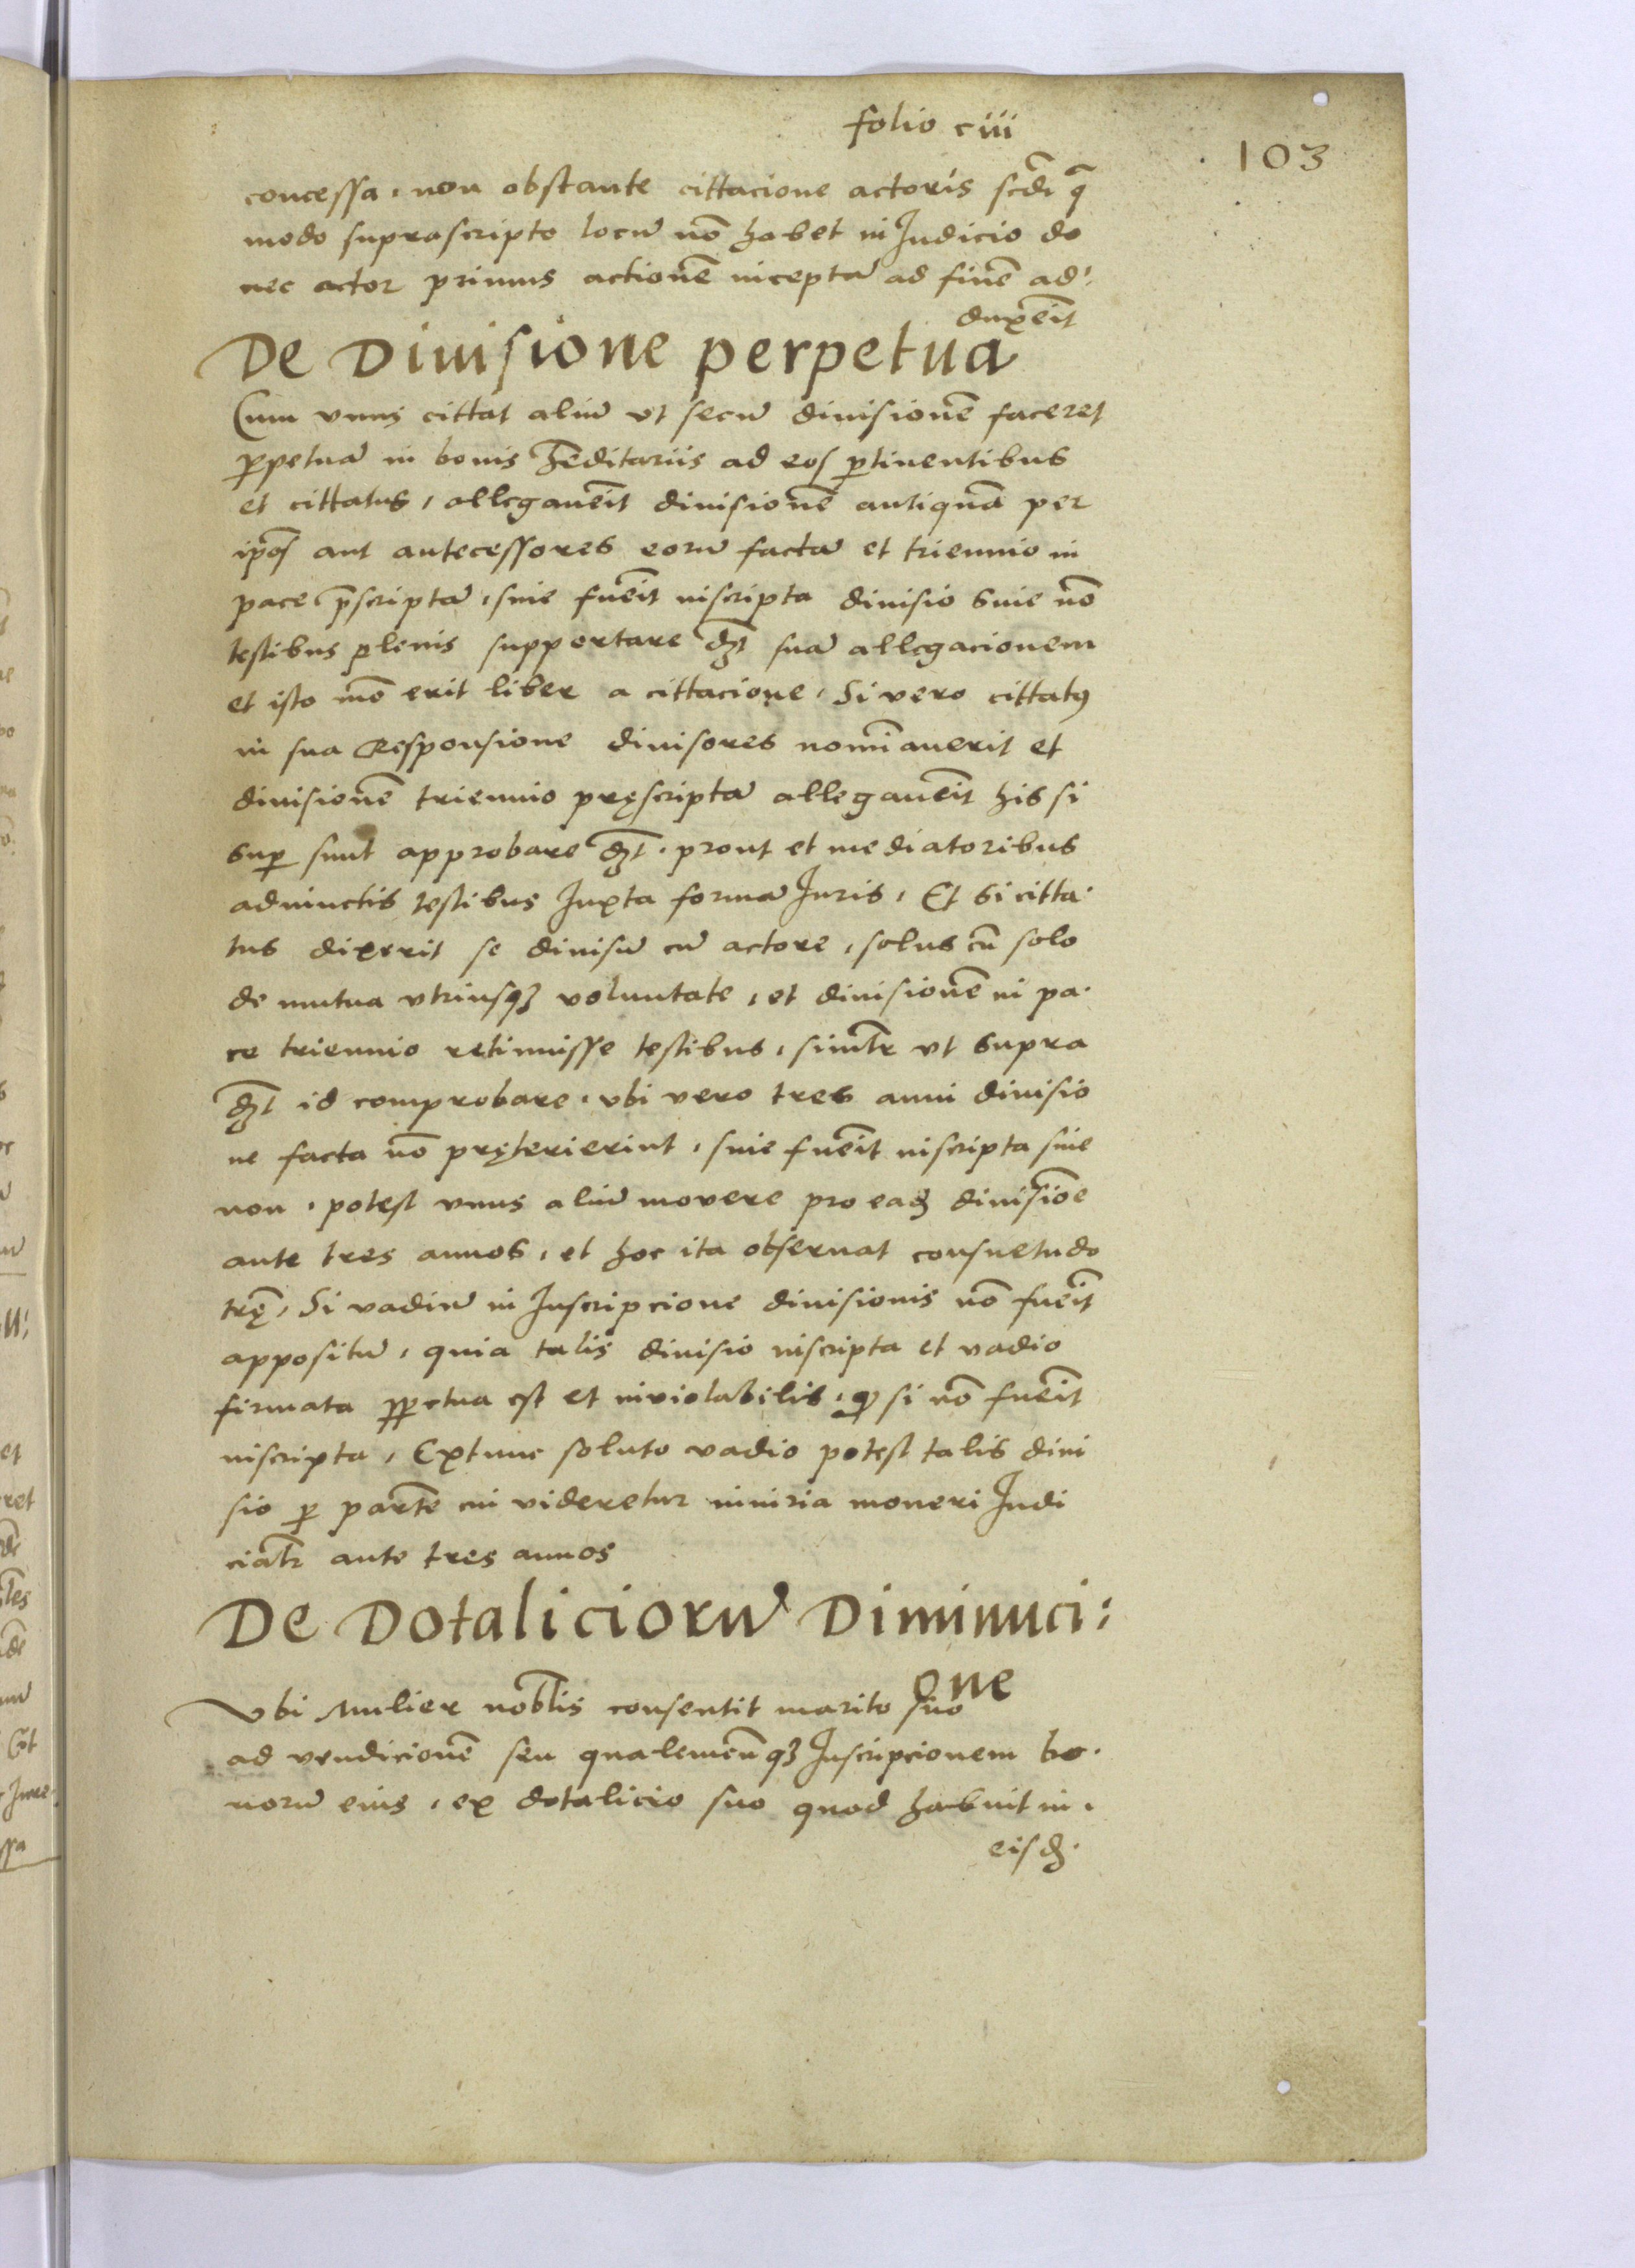 folio ciii
103
concessa, non obstante cittacione actoris scdi q̄
modo suprascripto locū nō habet in Judicio do
nec actor primus actionē inceptā ad finē ad:
duxeīt
De Diuisione perpetua
Cum vnus cittat aliū vt secū diuisionē faceret
ꝑpetuā in bonis hēditariis ad eos ꝑtinentibus
et cittatus, allegaueīt diuisionē antiquā per
ip̄os aut antecessores eorū factā et triennio in
pace p̄scriptā, siue fueīt inscripta diuisio siue nō
testibus plenis supportare dꝫt suā allegacionem
et isto mō erit liber a cittacione, Si vero cittatꝰ
in sua Responsione diuisores nomīauerit et
diuisionē triennio pręscriptā allegaueīt his si
suꝑ sunt approbare dꝫt, prout et mediatoribus
adiunctis testibus Juxta formā Juris, Et si citta
tus dixerit se diuisū cū actore, solus cū solo
de mutua vtriusqꝫ voluntate, et diuisionē in pa
ce triennio retinuisse testibus, simlr̄ vt supra
dꝫt id comprobare, vbi vero tres anni diuisio
ne facta nō pręterierint, siue fueīt inscripta siue
non, potest vnus aliū movere pro eadꝫ diuisiōe
ante tres annos, et hoc ita obseruat consuetudo
trę̄, Si vadiū in Inscripcione diuisionis nō fueīt
appositū, quia talis diuisio inscripta et vadio
firmata ꝑpetua est et inviolabilis, qꝫ si nō fueīt
inscripta, Extunc soluto vadio potest talis diui
sio ꝑ partē cui videretur iniuria moueri Judi
cialr̄ ante tres annos
De Dotaliciorū Diminuci:
one
Vbi Mulier nobl̄is consentit marito suo
ad vendicionē seu qualemcūqꝫ Inscripcionem bo
norū eius, ex dotalicio suo quod habuit in
eisdꝫ